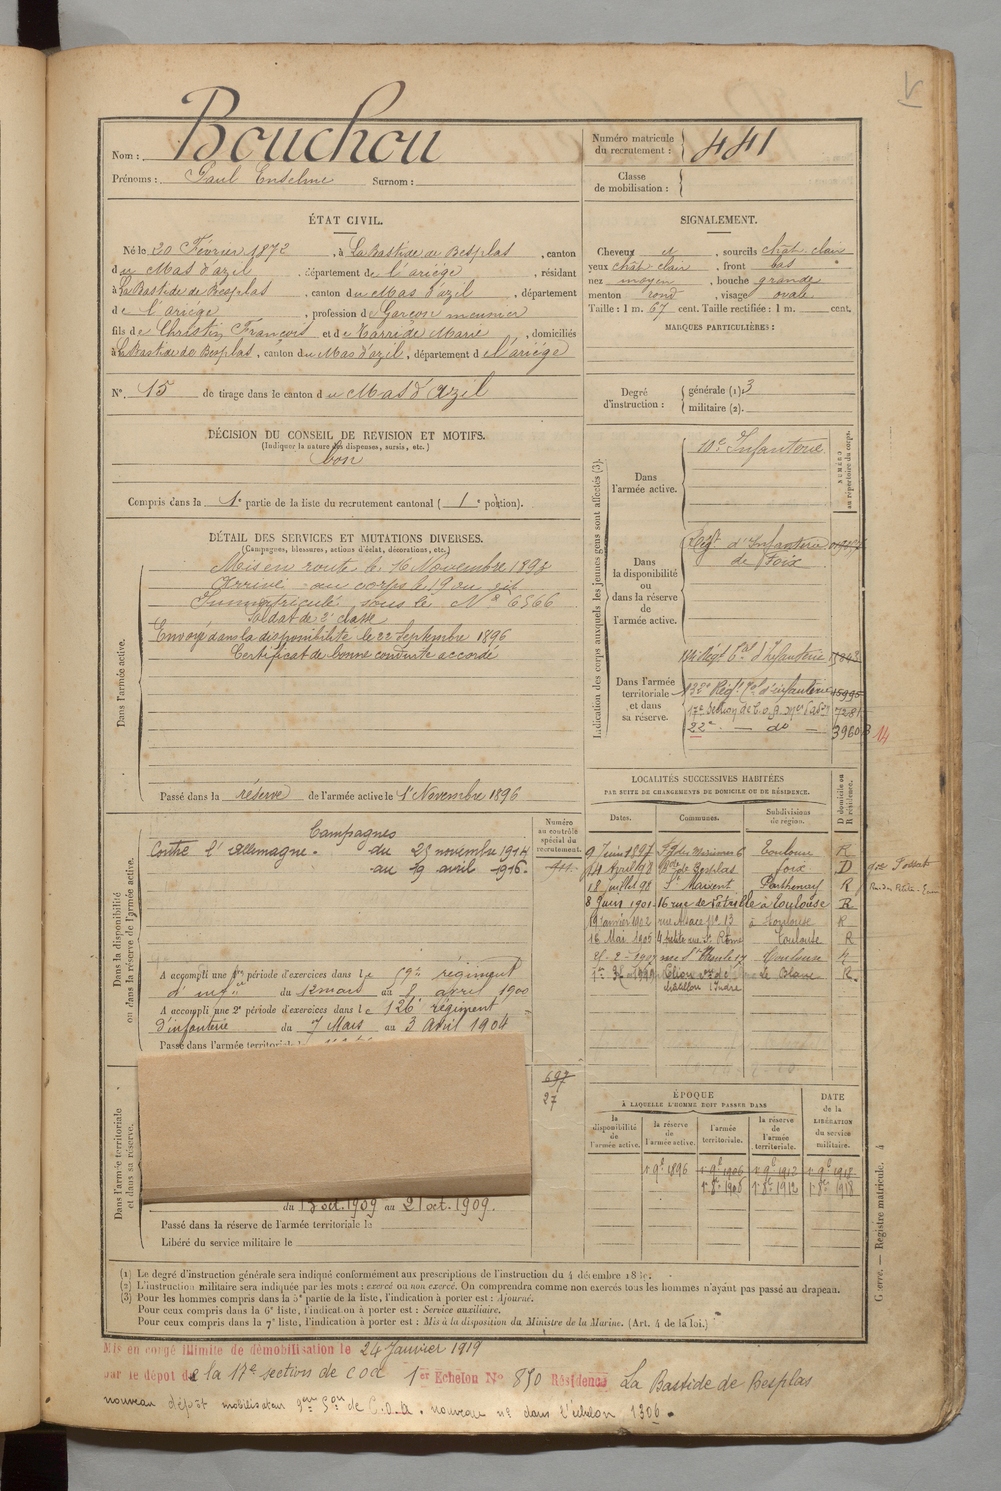 Nom : Bouchou
Prénoms : Paul Enselme Surnom :
Numéro matricule du recrutement : 441
Classe de mobilisation :
ÉTAT CIVIL.
Né le 20 Février 1872, à La Bastide de Besplas, canton
du Mas d'azil, département de l'ariège, résidant
à La Bastide de Besplas, canton du Mas d'azil, département
de l'ariège, profession de Garçon meunier
fils de Christin François et de Tarride Marie, domiciliés
à La Bastide de Besplas, canton du Mas d'azil, département de l'ariège
N° 15 de tirage dans le canton du Mas d'Azil
SIGNALEMENT.
Cheveux et, sourcils chât. clair
yeux chât clair, front bas
nez moyen, bouche grande
menton rond, visage ovale
Taille : 1 m. 67 cent. Taille rectifiée : 1 m. cent.
MARQUES PARTICULIÈRES :
Degré d'instruction : générale (1) 3
militaire (2).
DÉCISION DU CONSEIL DE RÉVISION ET MOTIFS.
(Indiquer la nature des dispenses, sursis, etc.)
bon
Compris dans la 1e partie de la liste du recrutement cantonal ( 1e portion).
DÉTAIL DES SERVICES ET MUTATIONS DIVERSES.
(Campagnes, blessures, actions d'éclat, décorations, etc.)
Dans l'armée active.
Mis en route le 16 Novembre 1893
Arrivé au corps le 19 au dit
Immatriculé sous le N° 6566
Soldat de 2e classe
Envoyé dans la disponibilité le 22 Septembre 1896
Certificat de bonne conduite accordé
Passé dans la réserve de l'armée active le 1er Novembre 1896
Indication des corps auxquels les jeunes gens sont affectés (3).
NUMÉRO au répertoire du corps.
Dans l'armée active.
10e Infanterie
Dans la disponibilité ou dans la réserve de l'armée active.
Regt d'Infanterie
de Foix
Dans l'armée territoriale et dans sa réserve.
134 Regt Cal d'Infanterie 15843
133e Regt Tal d'infanterie 15995
17e Section de C.O.A. 7281
22e — do — 3960
14
Dans la disponibilité ou dans la réserve de l'armée active.
Numéro au contrôle spécial du recrutement.
Campagnes
Contre l'Allemagne. du 23 novembre 1914
au 19 avril 1916.
A accompli une 1re période d'exercices dans le 59e régiment
d'infie du 12 mars au 8 avril 1900
A accompli une 2e période d'exercices dans le 126e régiment
d'infanterie du 7 Mars au 3 Avril 1904
Passé dans l'armée territoriale le
697
27
Dans l'armée territoriale et dans sa réserve.
du 13 oct. 1909 au 21 oct. 1909.
Passé dans la réserve de l'armée territoriale le
Libéré du service militaire le
LOCALITÉS SUCCESSIVES HABITÉES
PAR SUITE DE CHANGEMENTS DE DOMICILE OU DE RÉSIDENCE.
D domicile ou R résidence.
Dates. Communes. Subdivisions de région.
9 Juin 1897 Toulouse R
14 Avril 98 Bde de Besplas foix D
18 juillet 98 St Maixent Parthenay R
8 Juin 1901 à Toulouse R
19 janvier 1902 rue Alsace No 13 à Toulouse R
16 Mai 1905 4 petite rue St Rome Toulouse R
Toulouse R
Le Blanc R
Indre
ÉPOQUE
À LAQUELLE L'HOMME DOIT PASSER DANS
DATE de la LIBÉRATION du service militaire.
la disponibilité de l'armée active. la réserve de l'armée active. l'armée territoriale. la réserve de l'armée territoriale.
1er 9bre 1896 1er 9bre 1906 1er 9bre 1912 1er 9bre 1918
1er 8bre 1906 1er 8bre 1912 1er 8bre 1918
(1) Le degré d'instruction générale sera indiqué conformément aux prescriptions de l'instruction du 4 décembre 1889.
(2) L'instruction militaire sera indiquée par les mots : exercé ou non exercé. On comprendra comme non exercés tous les hommes n'ayant pas passé au drapeau.
(3) Pour les hommes compris dans la 5e partie de la liste, l'indication à porter est : Ajourné.
Pour ceux compris dans la 6e liste, l'indication à porter est : Service auxiliaire.
Pour ceux compris dans la 7e liste, l'indication à porter est : Mis à la disposition du Ministre de la Marine. (Art. 4 de la loi.)
Guerre. — Registre matricule. 4
Mis en congé illimité de démobilisation le 24 Janvier 1919
par le dépôt de la 17e section de COA 1er Echelon N° 850 Résidence La Bastide de Besplas
nouveau dépôt mobilisateur Son de C.O.A. nouveau no dans l'échelon 1306.